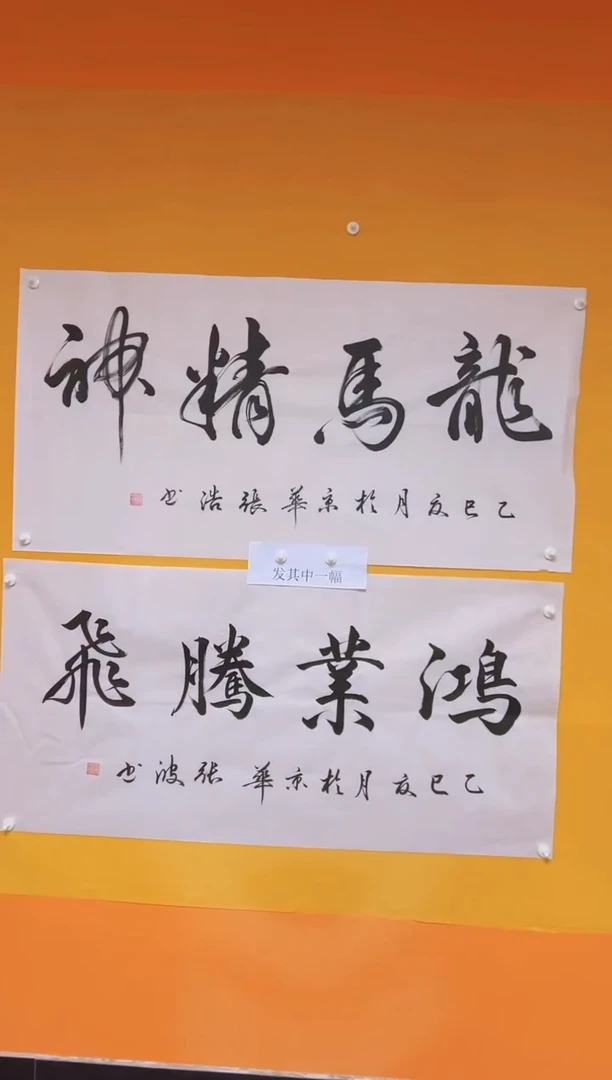 龍馬精神
乙巳夏月於京華張浩书
发其中一幅
鴻業騰飛
乙巳夏月於京華张波书